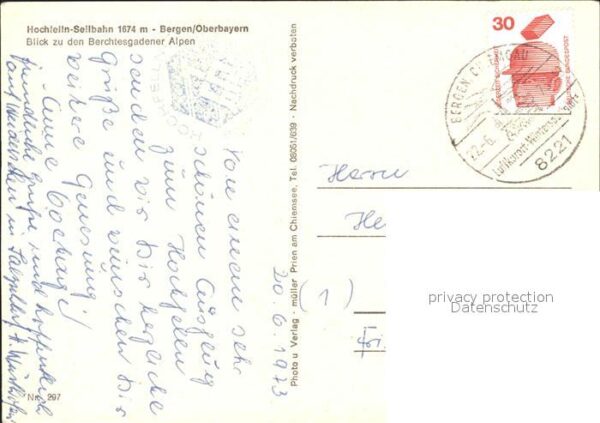 Hochfelln-Seilbahn 1674 m - Bergen/Oberbayern
Blick zu den Berchtesgadener Alpen
Von einem sehr
schönen Ausflug
zum Hochfelln
senden wir Dir herzliche
Grüße und wünschen Dir
weitere Genesung!
Anne
freundliche Grüße und hoffentlich
in
20.6.1973
Nr. 297
Photo u Verlag - müller Prien am Chiemsee, Tel. 08051/639 - Nachdruck verboten
30
DEUTSCHE BUNDESPOST
BERGEN
CHIEMGAU
22.-6.
8221
Herrn
He
(1)
privacy protection
Datenschutz